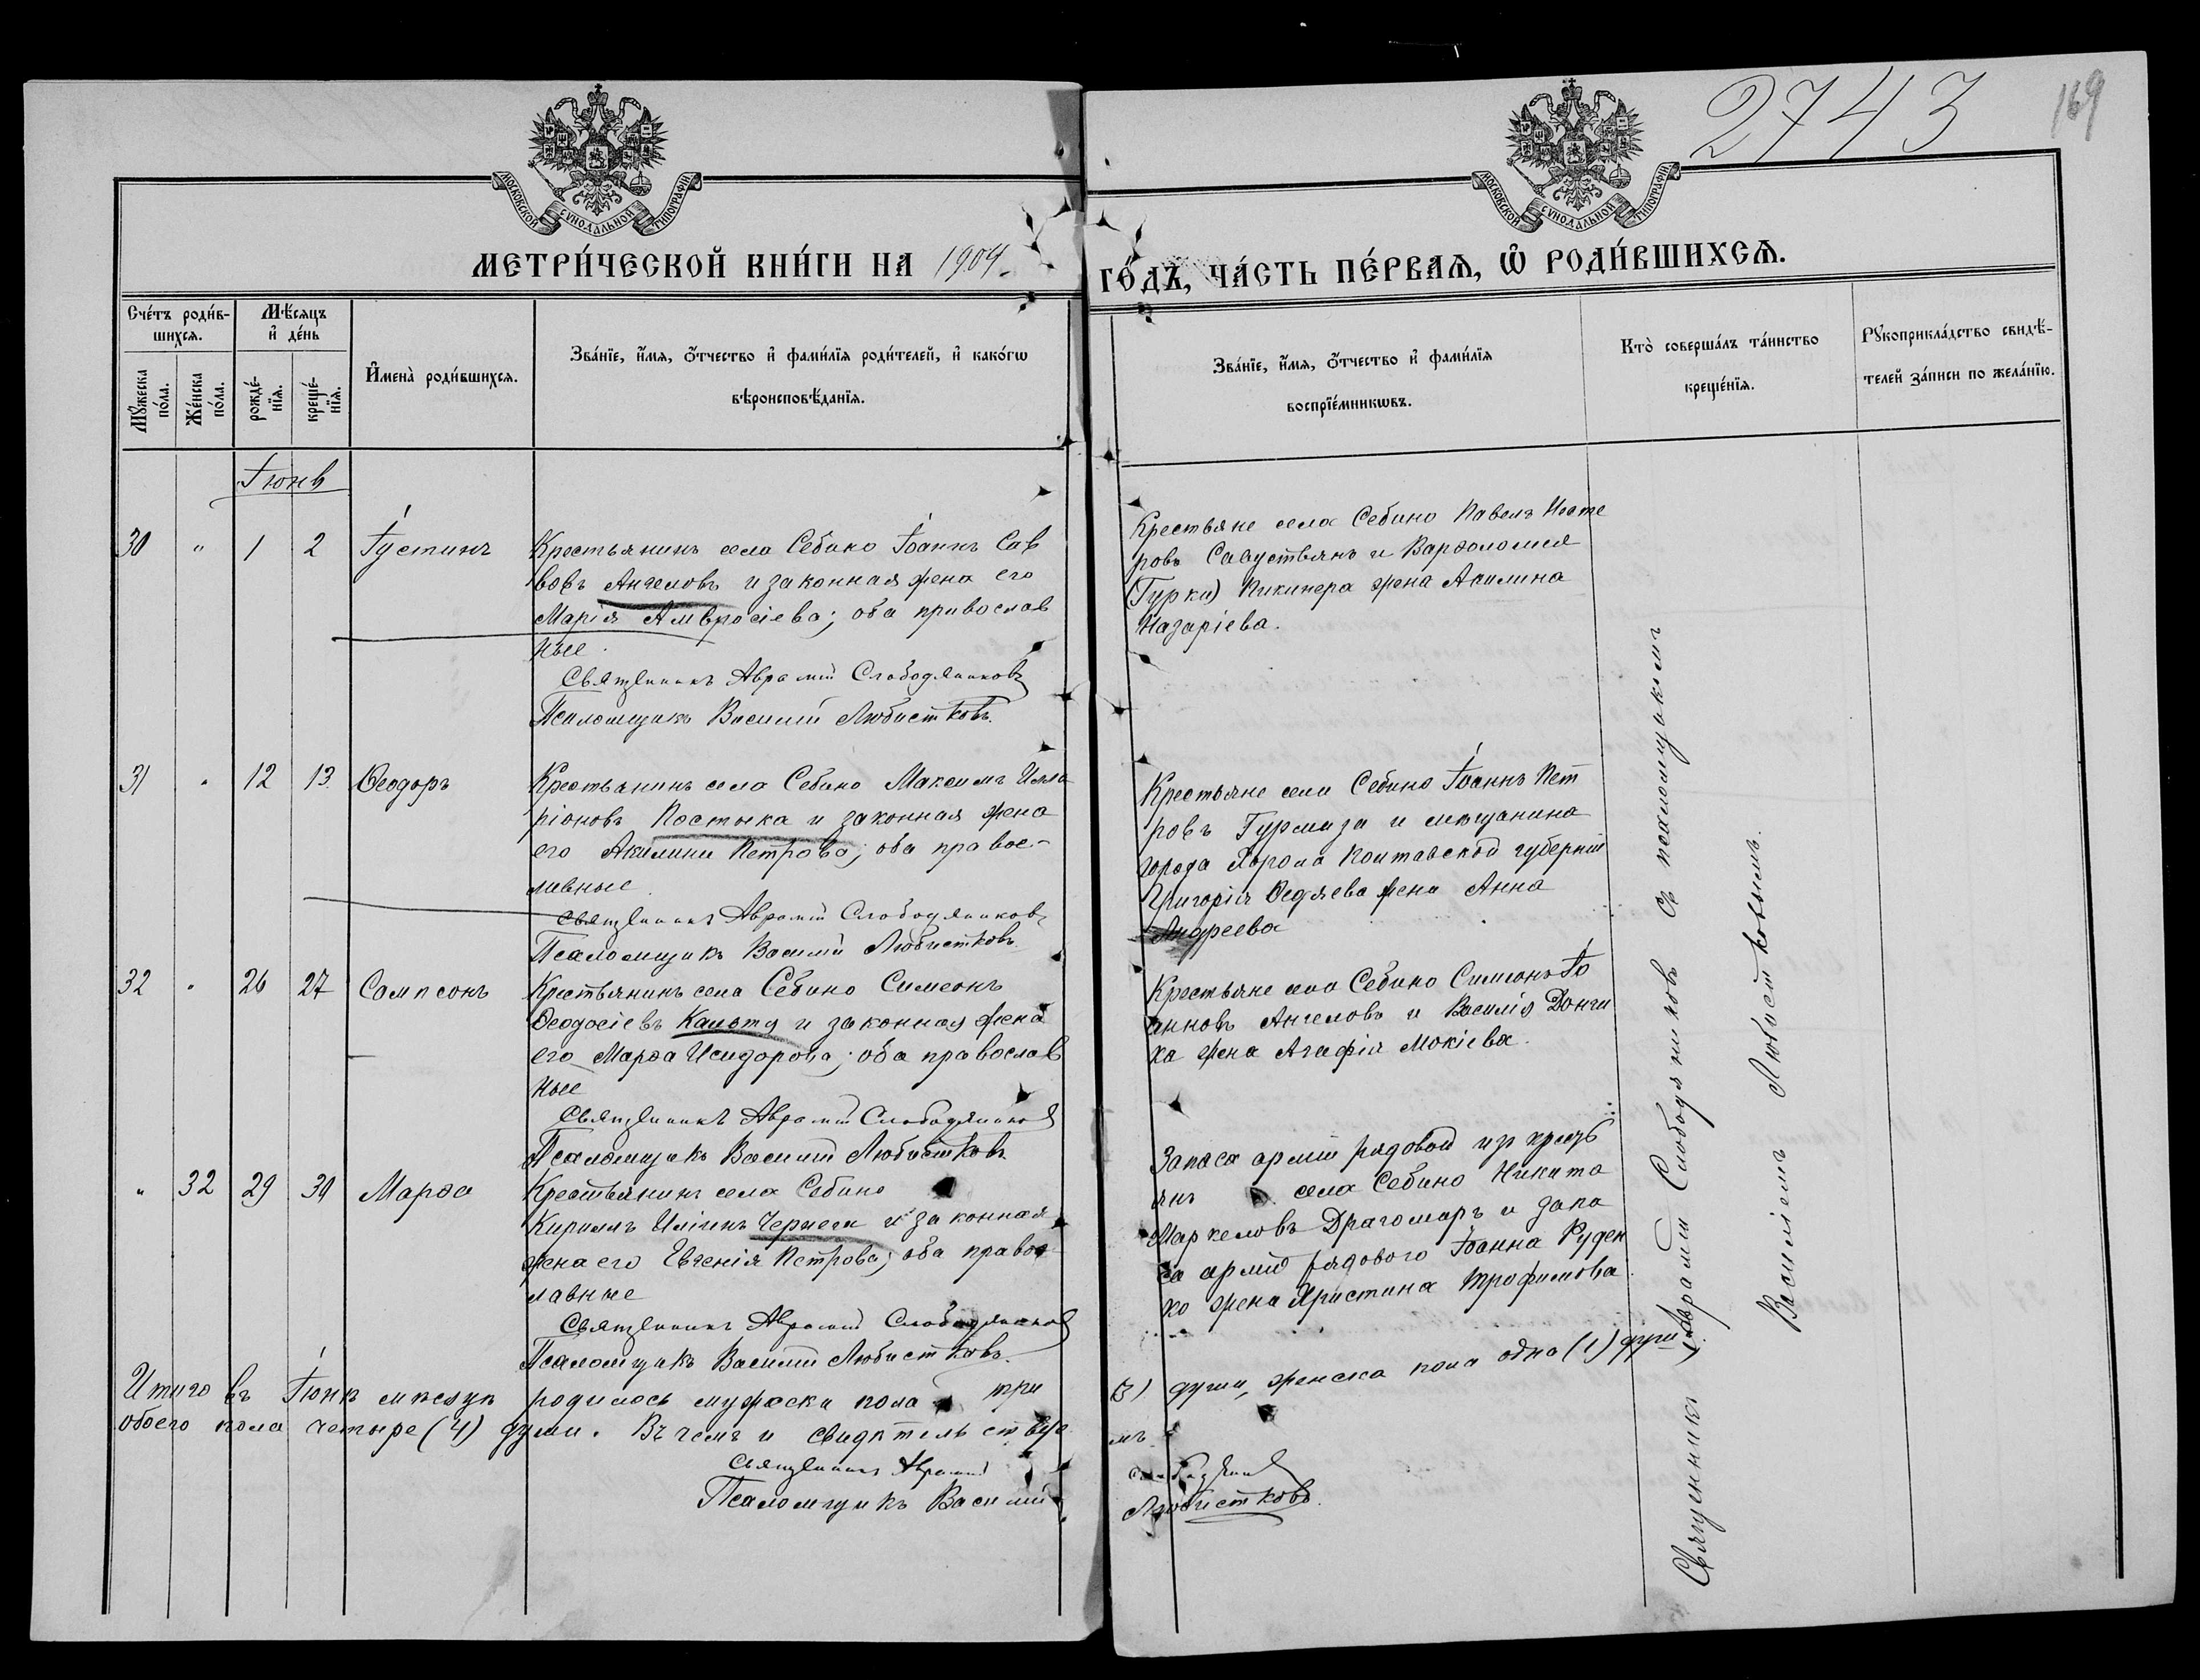 2743
169
МОСКОВСКОЙ СѴНОДАЛЬНОЙ ТИПОГРАФІИ
МОСКОВСКОЙ СѴНОДАЛЬНОЙ ТИПОГРАФІИ
МЕТРИ́ЧЕСКОЙ КНИ́ГИ НА 1904. ГО́ДЪ, ЧА́СТЬ ПЕ́РВАѦ, Ѡ҆ РОДИ́ВШИХСѦ.
Счéтъ роди́в-
шихсѧ.
Мѣ́сѧцъ
и҆ де́нь
Мꙋ́жеска
по́ла.
Же́нска
по́ла.
рожде́-
нїѧ.
креще́-
нїѧ.
И҆мена̀ роди́вшихсѧ.
Зва́нїе, и҆́мѧ, ѻ҆́тчество и҆ фами́лїѧ роди́телей, и҆ како́гѡ
вѣроисповѣ́данїѧ.
Зва́нїе, и҆́мѧ, ѻ҆́тчество и҆ фами́лїѧ
воспрїе́мникѡвъ.
Кто̀ соверша́лъ та́инство
креще́нїѧ.
Рꙋкоприкла́дство свидѣ́-
телей за́писи по жела́нїю.
Іюнь
30 " 1 2 Іустинъ
Крестьянинъ села Себино Іоаннъ Сав
вовъ Ангеловъ и законная жена его
Марія Амвросіева; оба православ
ные.
Священникъ Аврамій Слободяников
Псаломщикъ Василій Любистковъ.
Крестьяне села Себино Павелъ
ровъ и Варѳоломея
(Турки) Пикинера жена Акилина
Назаріева.
31 " 12 13 Ѳеодоръ
Крестьянинъ села Себино Максимъ Илла
ріоновъ Постыка и законная жена
его Акилина Петрова; оба правос-
лавные
Священникъ Аврамій Слободяников
Псаломщикъ Василій Любистковъ
Крестьяне села Себино Іоаннъ Пет
ровъ Гурмаза и мѣщанина
города Хорола Полтавской губерніи
Григорія Ѳедяева жена Анна
Андреева
32 " 26 27 Сампсонъ
Крестьянинъ села Себино Симеонъ
Ѳеодосіевъ и законная жена
его Марѳа Исидорова; оба православ
ные
Священникъ Аврамій Слободяников
Псаломщикъ Василій Любистковъ
Крестьяне села Себино Симеонъ Іо
анновъ Ангеловъ и Василія Донги
ка жена Агафія Мокіева.
" 32 29 30 Марѳа
Крестьянинъ села Себино
Кириллъ Иліинъ Чернега и законная
жена его Евгенія Петрова; оба правос
лавные
Священникъ Аврамій Слободяников
Псаломщикъ Василій Любистковъ.
Запаса арміи рядовой изъ кресть
янъ села Себино Никита
Маркеловъ Драгомаръ и запа
са арміи рядового Іоанна Руден
ко жена Христина Трофимова.
Итого въ Іюнѣ мѣсяцѣ родилось мужеска пола три (3) души, женска пола одна (1) душа,
обоего пола четыре (4) души. Въ чемъ и свидѣтельствуе мъ
Священникъ Аврамій Слободяников
Псаломщикъ Василій Любистковъ.
Священникъ Аврамій Слободяниковъ съ псаломщикомъ
Василіемъ Любистковымъ.